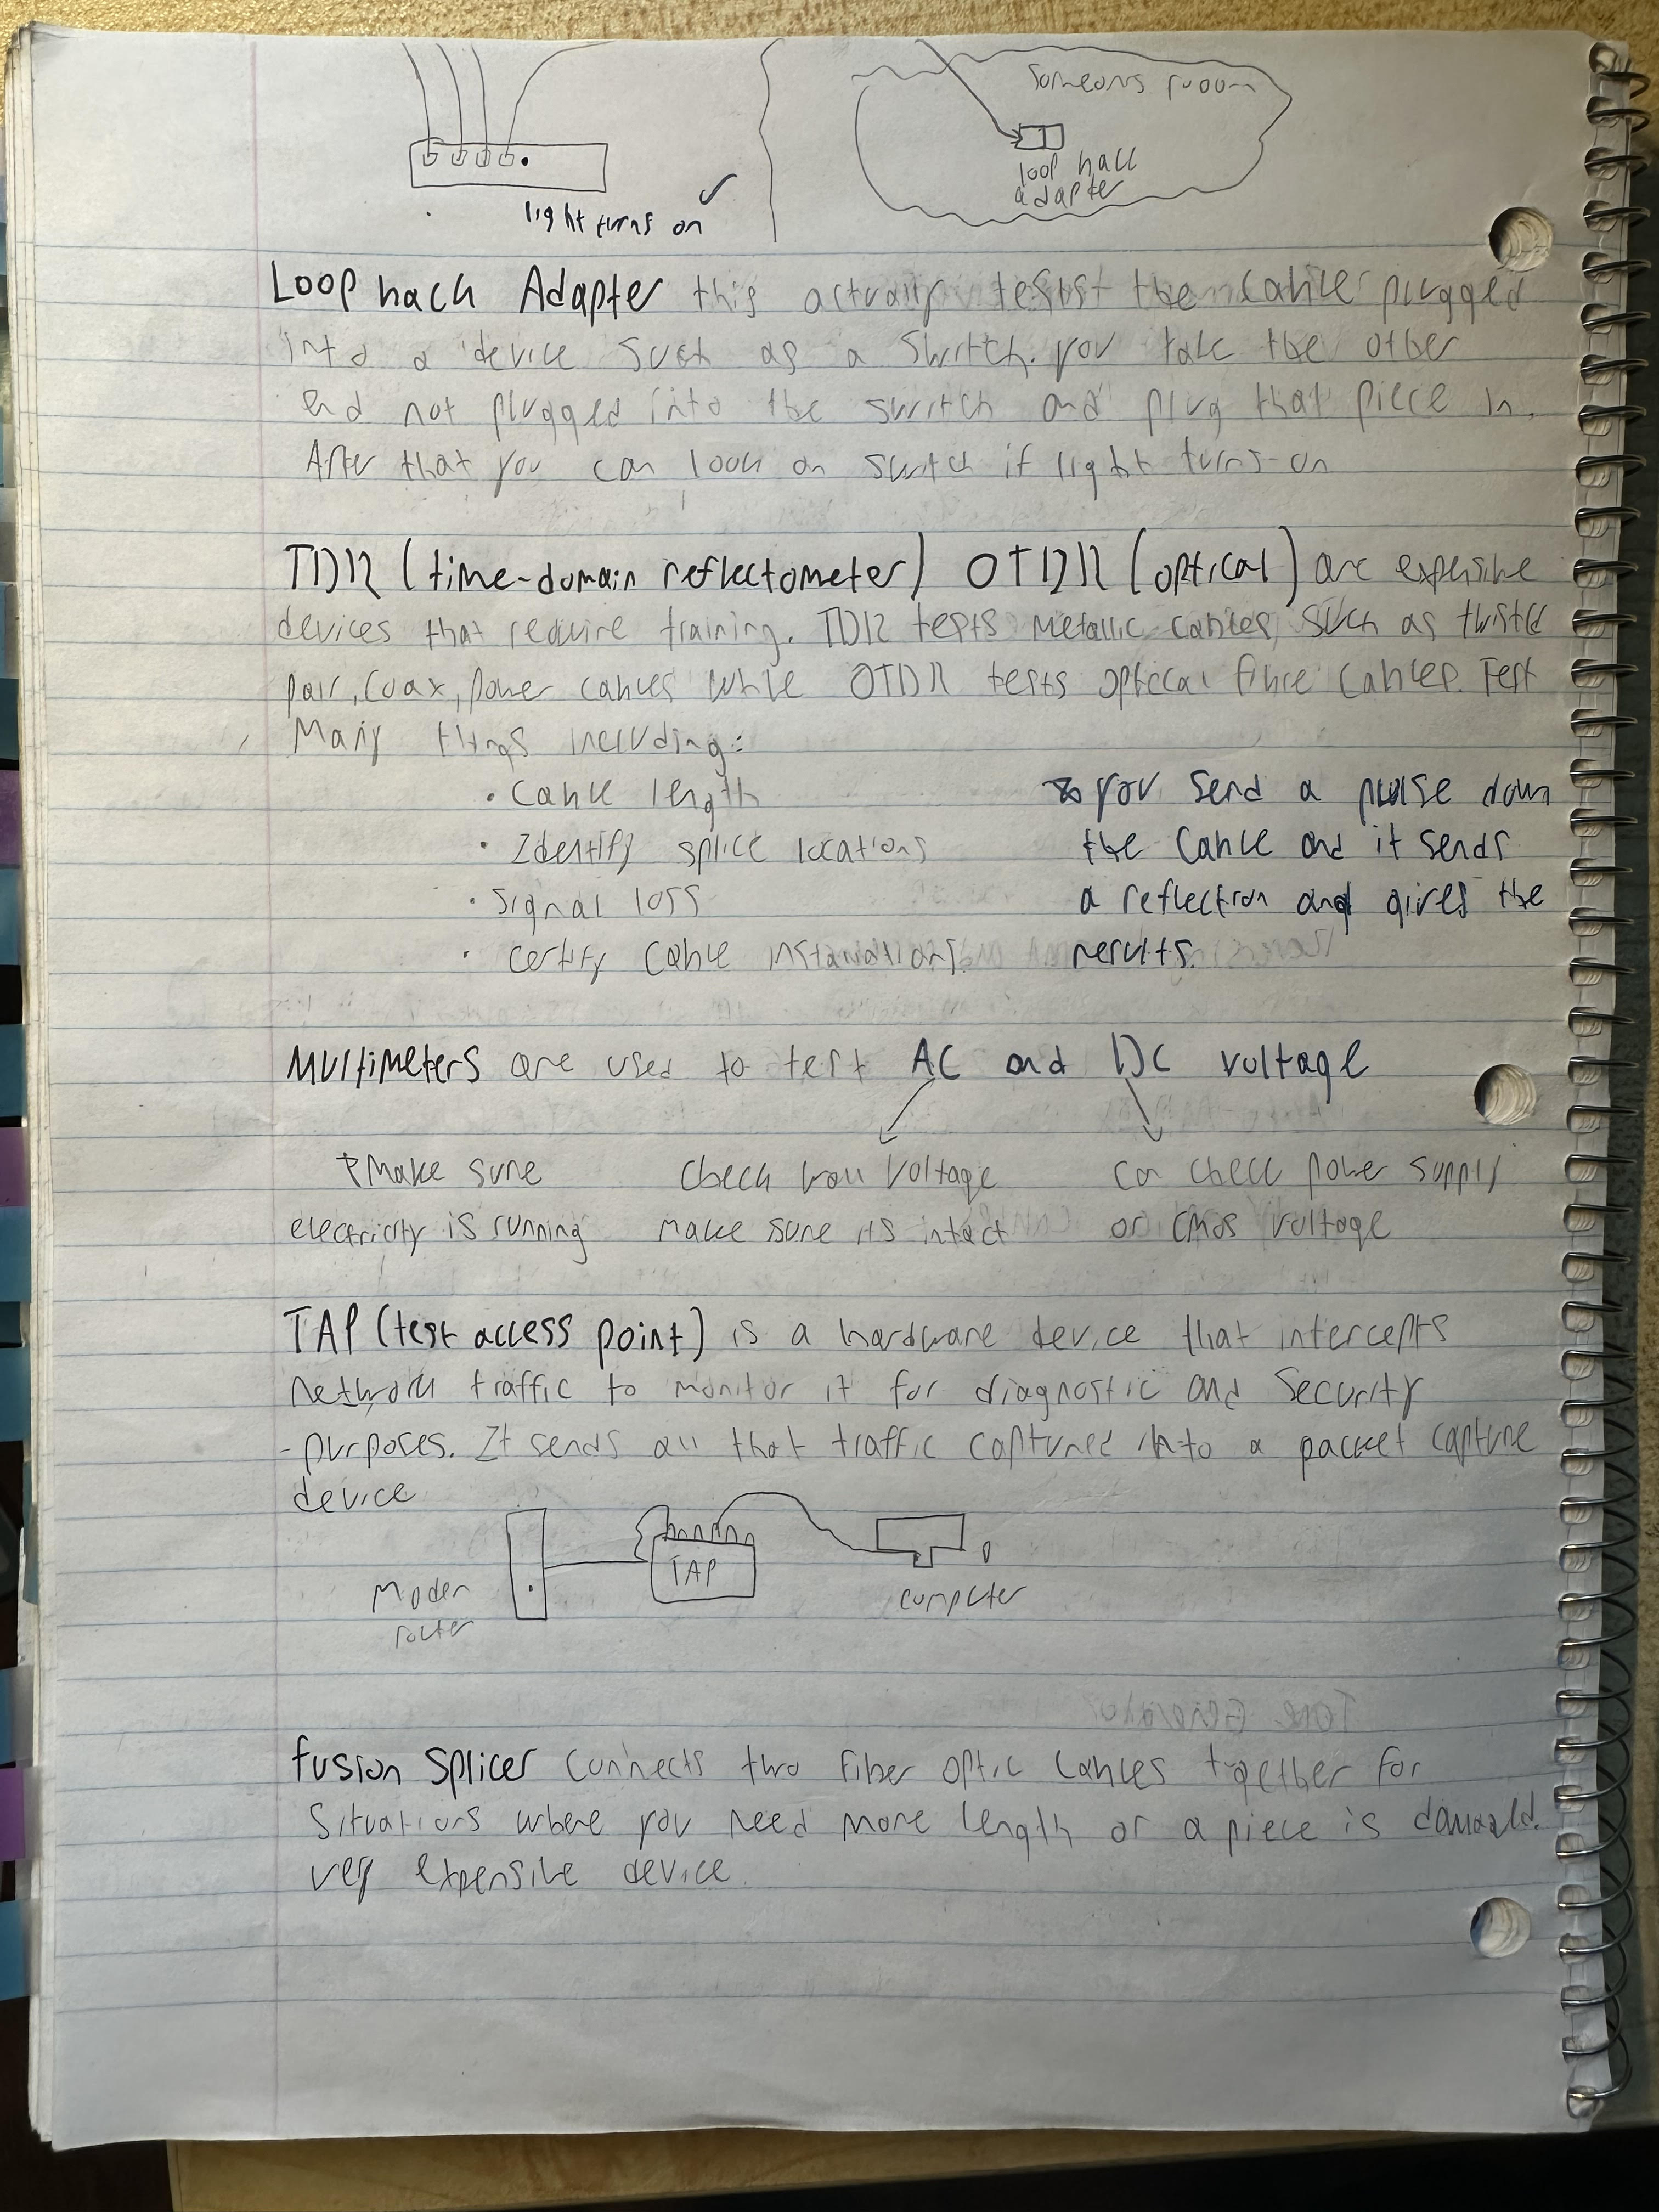 Someons room
loop back
adapter
light turns on
Loop back Adapter this actually tests the cable plugged
into a device such as a switch. you take the other
end not plugged into the switch and plug that piece in.
After that you can look on switch if light turns on
TDR (time-domain reflectometer) OTDR (optical) are expensive
devices that require training. TDR tests metallic cables, such as twisted
pair, coax, power cables while OTDR tests optical fibre cables. Test
Many things including:
• Cable length
• Identify splice locations
• Signal loss
• certify cable installations.
you send a pulse down
the cable and it sends
a reflection and gives the
results.
Multimeters are used to test AC and DC voltage
Make sure
electricity is running
Check wall voltage
make sure its intact
can check power supply
or CMOS voltage
TAP (test access point) is a hardware device that intercepts
network traffic to monitor it for diagnostic and security
purposes. It sends all that traffic captured into a packet capture
device
TAP
Modem
router
computer
fusion splicer connects two fiber optic cables together for
situations where you need more length or a piece is damaged.
very expensive device.